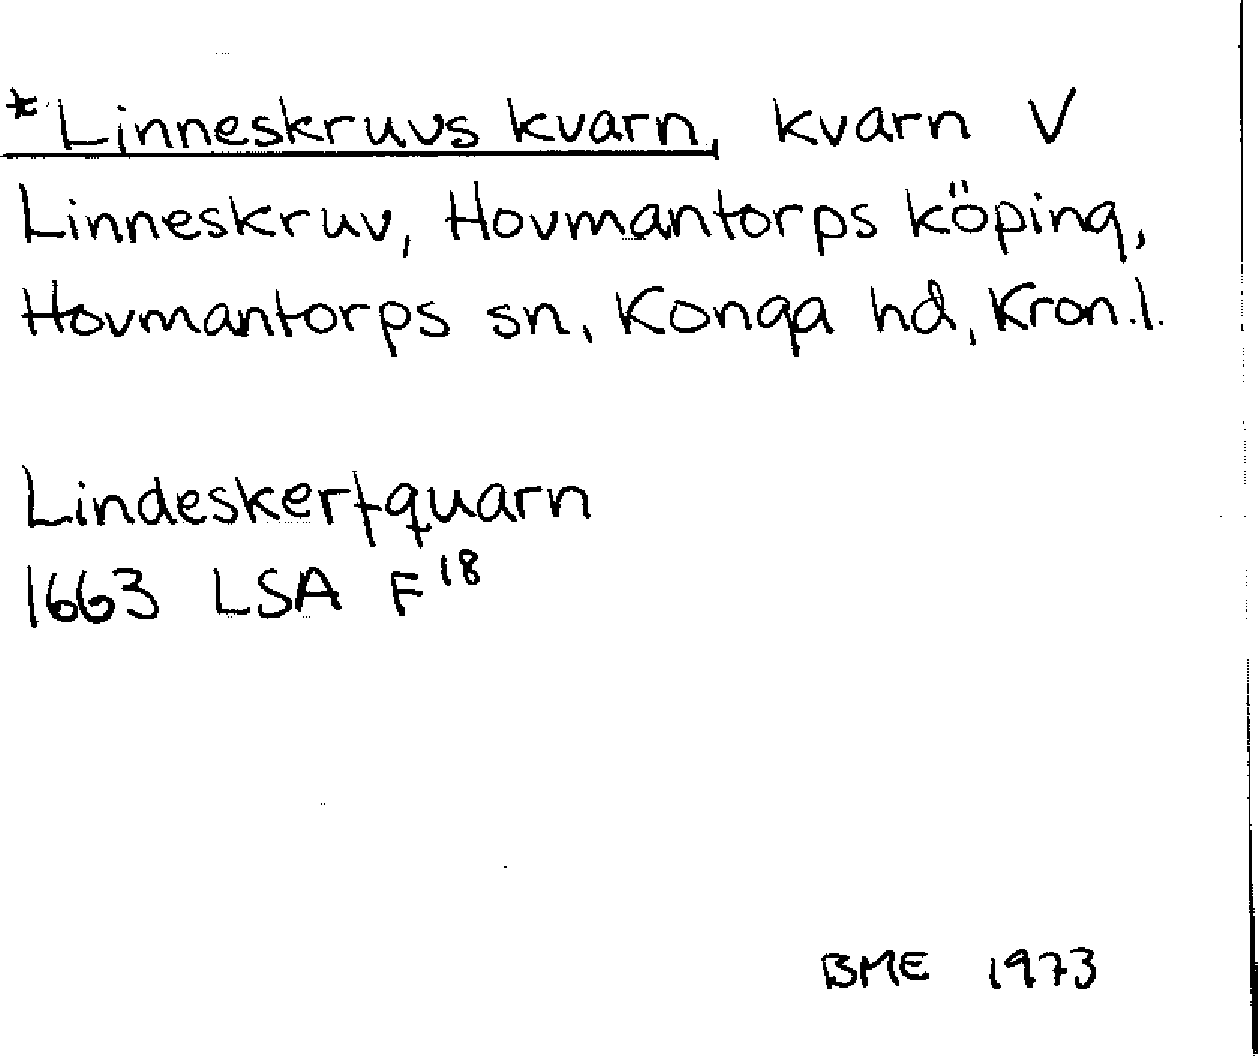 *Linneskruvs kvarn, kvarn V
Linneskruv, Hovmantorps köping,
Hovmantorps sn, Konga hd, Kron.l.
Lindeskertquarn
1663 LSA F18
BME 1973